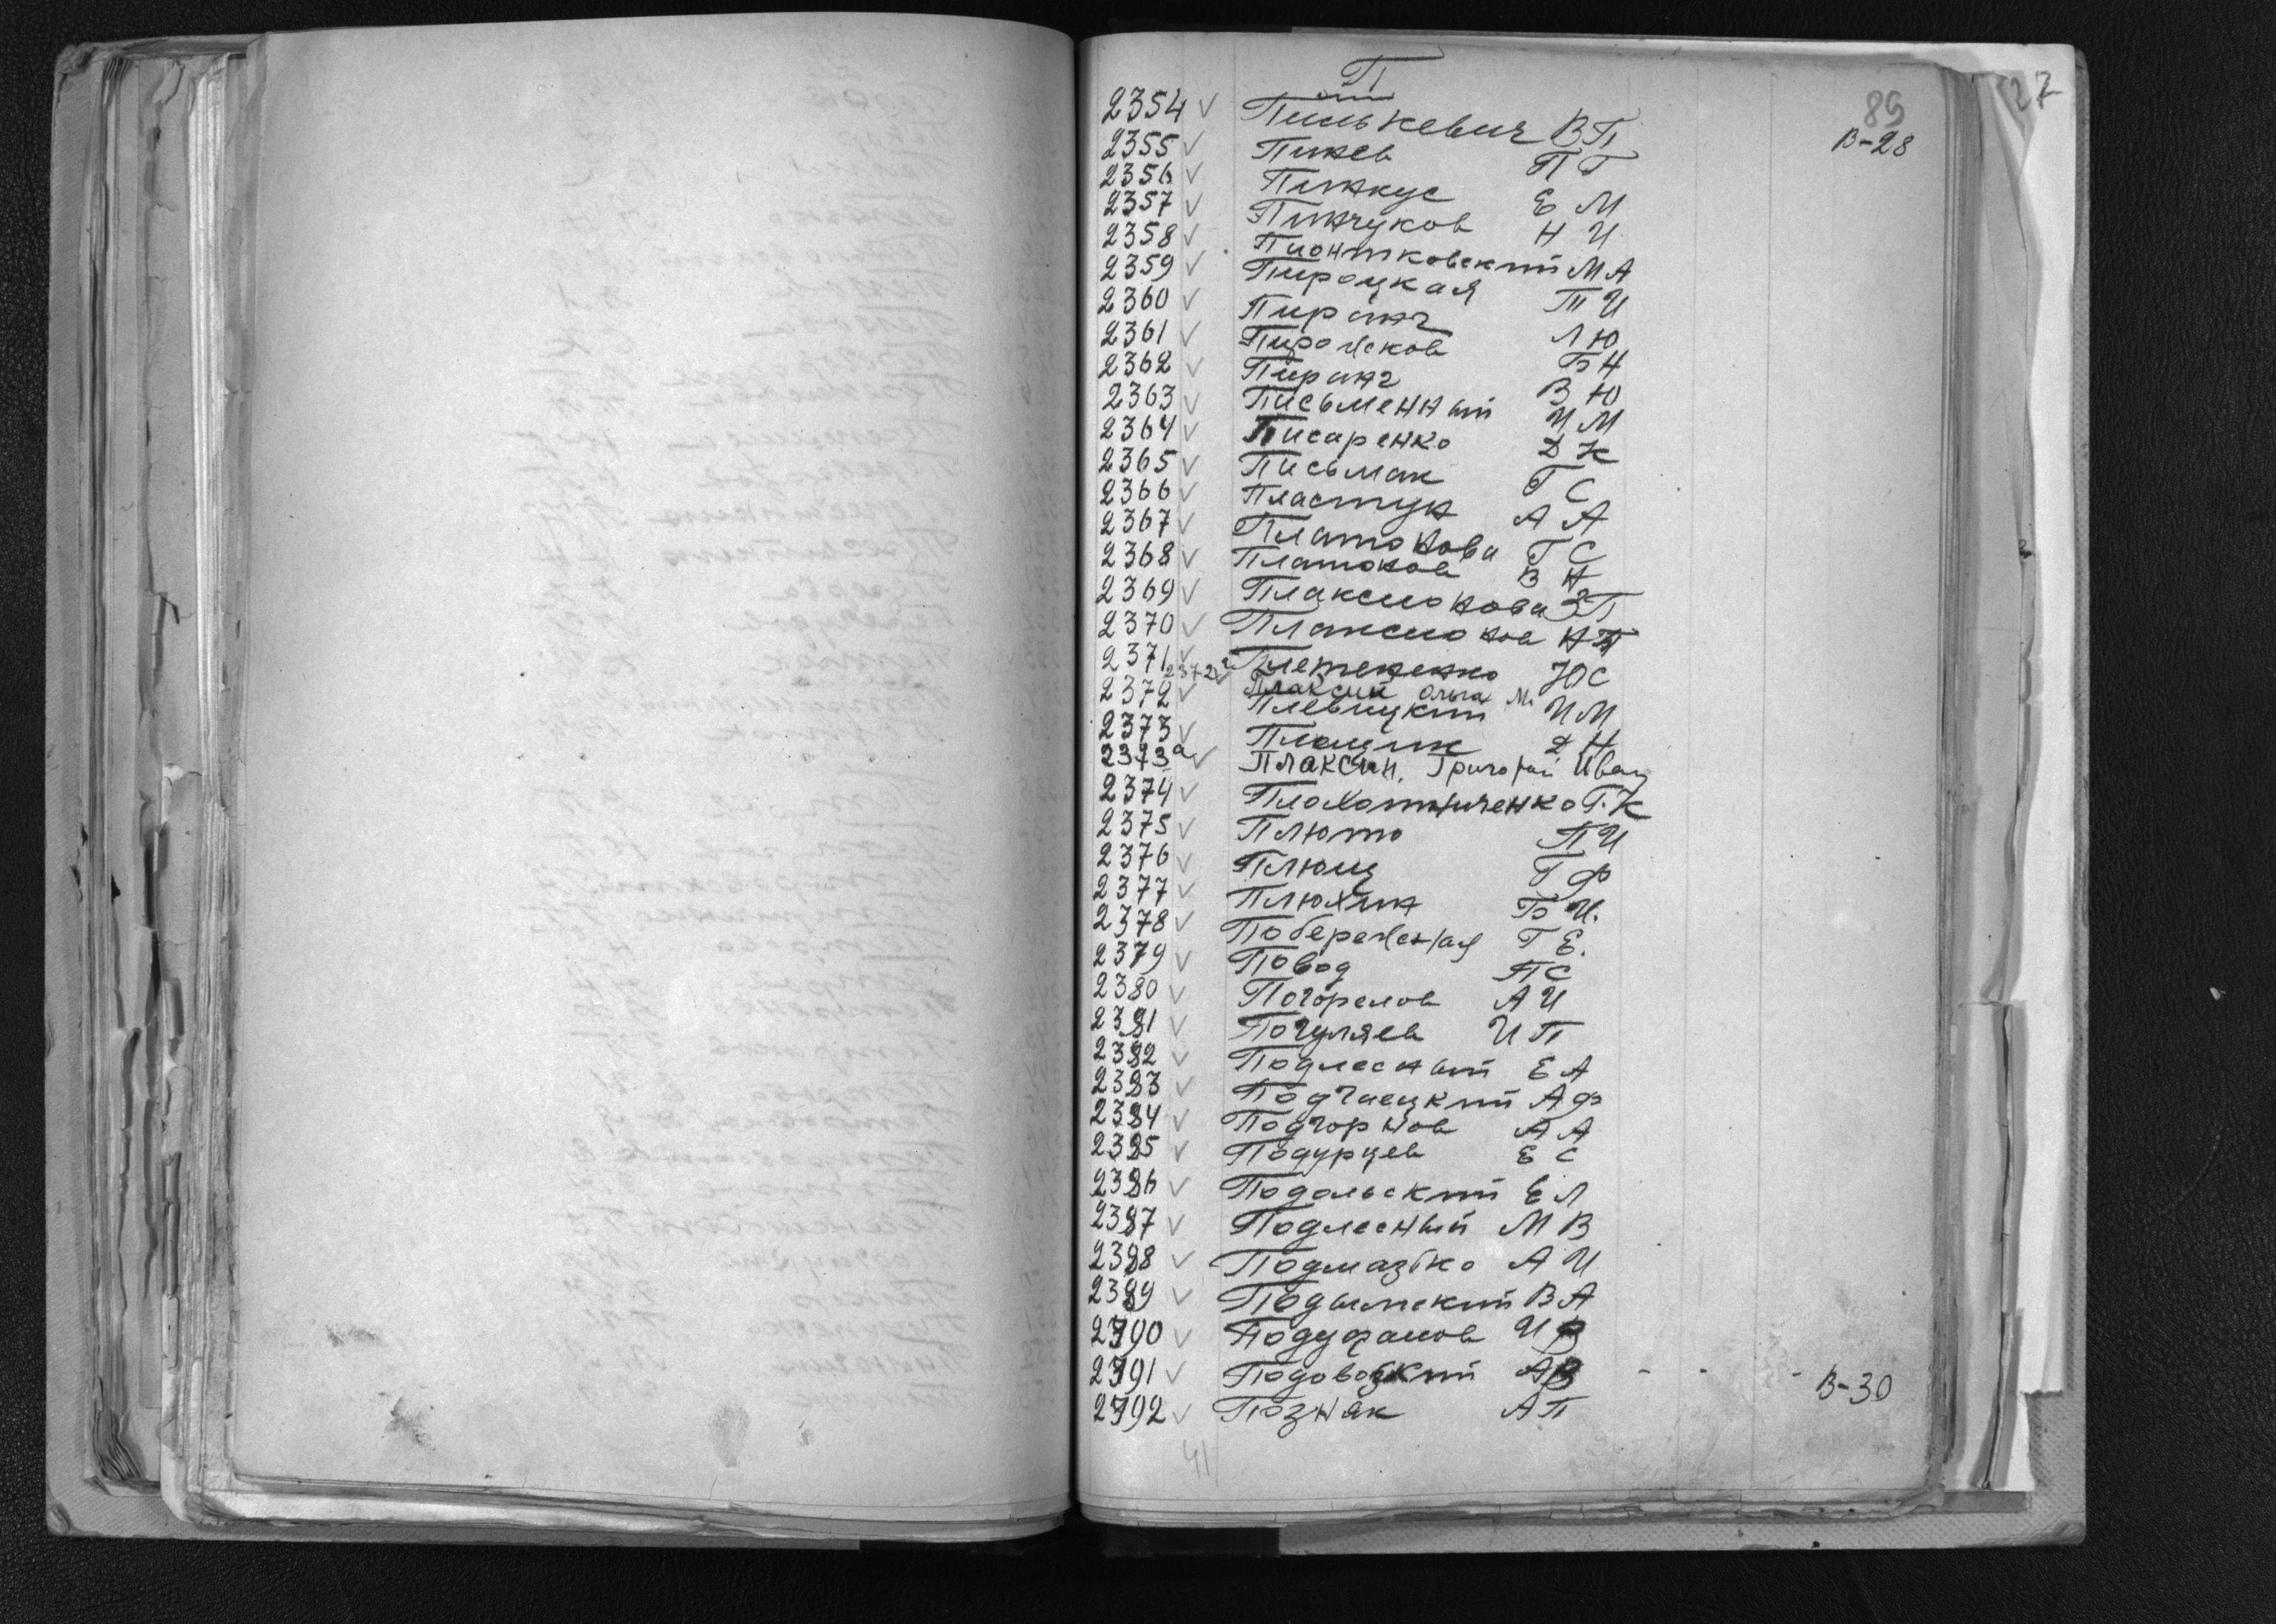 27
89
П
2354 Пилькевич В П В-28
2355 Пинев П Г
2356 Пинкус Е М
2357 Пинчуков Н И
2358 Пионтковский М А
2359 Пироцкая Т И
2360 Пиринг Л Ю
2361 Пирожков Б Н
2362 Пиринг В Ю
2363 Письменный И М
2364 Писаренко Д К
2365 Письмак Г С
2366 Пластун А А
2367 Платонова Г С
2368 Платонов В Н
2369 Плаксионова З П
2370 Плаксионов Н П
2371 Плетененко Ю С
2372а Плаксий Ольга М.
2372 Плевицкий И М
2373 Плащик Д Н
2373а Плаксин, Григорий Иван
2374 Плохотниченко Г. К
2375 Плюто П И
2376 Плющ Г Ф
2377 Плюхин Б И.
2378 Побережная Г Е.
2379 Повод П С
2380 Погорелов А И
2381 Погуляев И П
2382 Подлесный Е А
2383 Подгаецкий А Ф
2384 Подгорнов А А
2385 Подурцев Е С
2386 Подольский Е Л
2387 Подлесный М В
2388 Подмазко А И
2389 Подымский В А
2390 И В
2391 А В - - - В-30
2392 Позняк А П
41